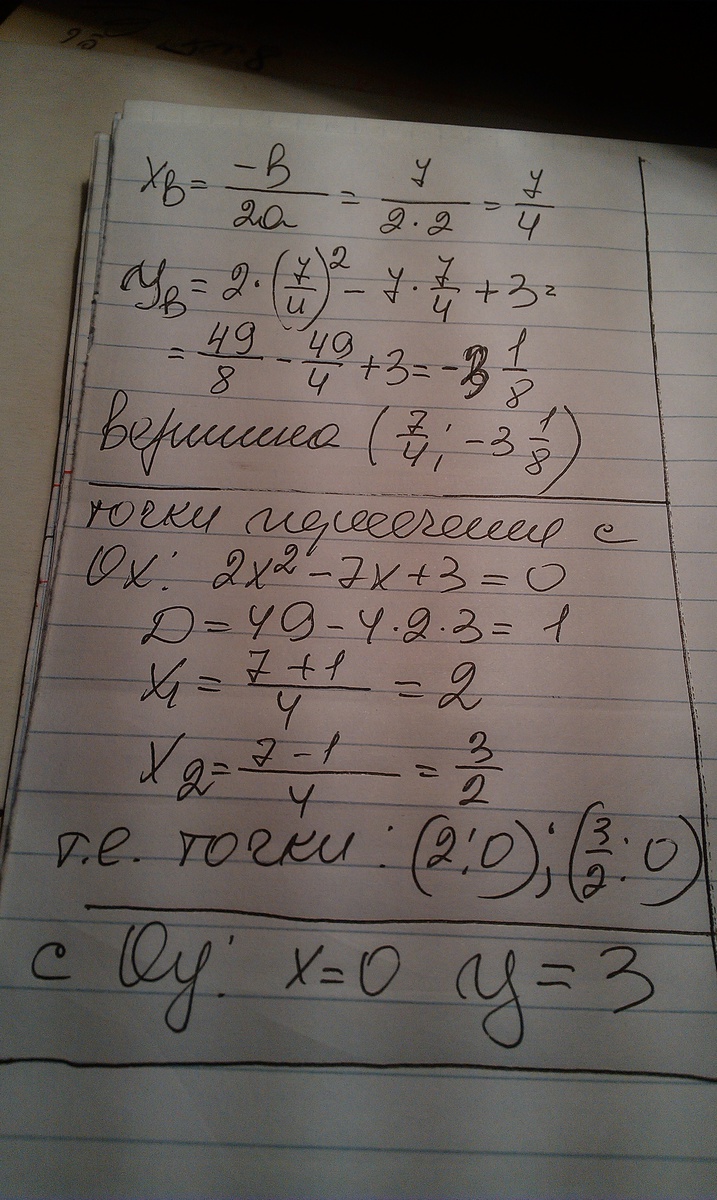 x_в = -в/2a = 7/(2·2) = 7/4
y_в = 2·(7/4)² - 7·7/4 + 3 =
= 49/8 - 49/4 + 3 = -3 1/8
Вершина (7/4; -3 1/8)
точки пересечения с
Ox: 2x² - 7x + 3 = 0
D = 49 - 4·2·3 = 1
x₁ = (7+1)/4 = 2
x₂ = (7-1)/4 = 3/2
т.е. точки: (2;0); (3/2;0)
с Oy: x=0 y=3